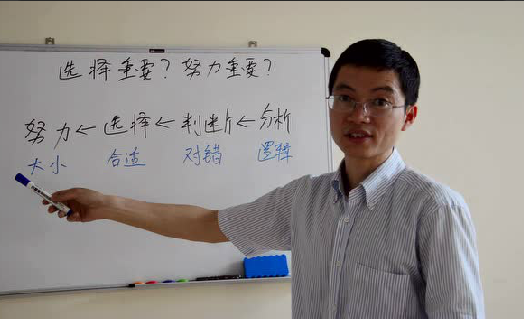 选择重要？努力重要？
努力←选择←判断←分析
大小 合适 对错 逻辑